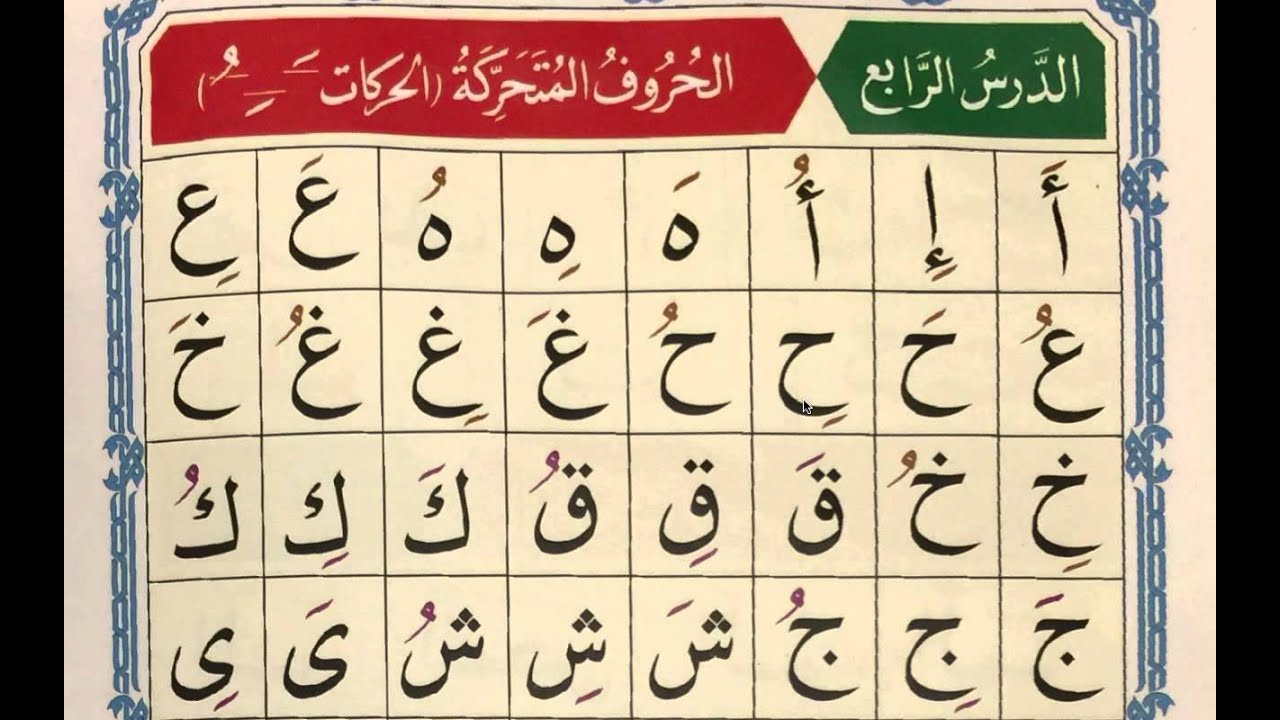 الدَّرسُ الرَّابع
الحُرُوفُ المُتَحَرِكَةُ (الحركات ـَ ـِ ـُ)
أَ إِ أُ هَ هِ هُ عَ عِ
عُ حَ حِ حُ غَ غِ غُ خَ
خِ خُ قَ قِ قُ كَ كِ كُ
جَ جِ جُ شَ شِ شُ ىَ ىِ